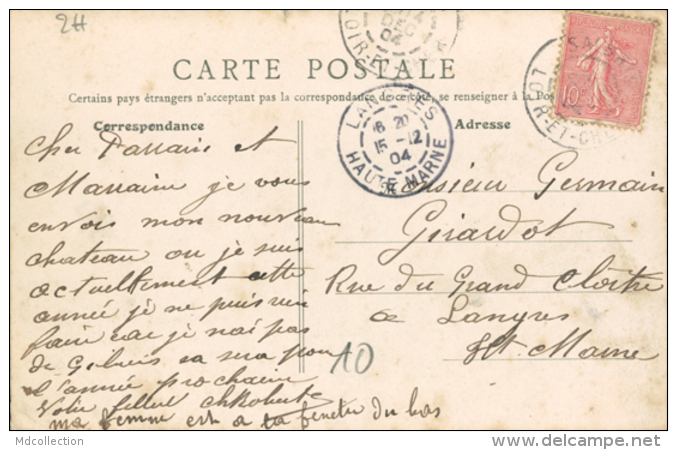 2H
CARTE POSTALE
Certains pays étrangers n'acceptant pas la correspondance de ce côté, se renseigner à la Pos
Correspondance
Adresse
LANGRES
6 20
15 - 12
04
HAUTE MARNE
LOIR-ET-CHER
04
10c
LOIR-ET-CHE
Cher Parrain et
Marraine je vous
envois mon nouveau
chateau ou je suis
actuellement cette
année je ne puis rien
faire car je n'ai pas
de sa sera pour
l'année prochaine
Votre
ma femme est a la fenetre du bas
Monsieur Germain
Girardot
Rue du Grand Cloitre
a Langres
Hte Marne
10
Mdcollection
delcampe.net